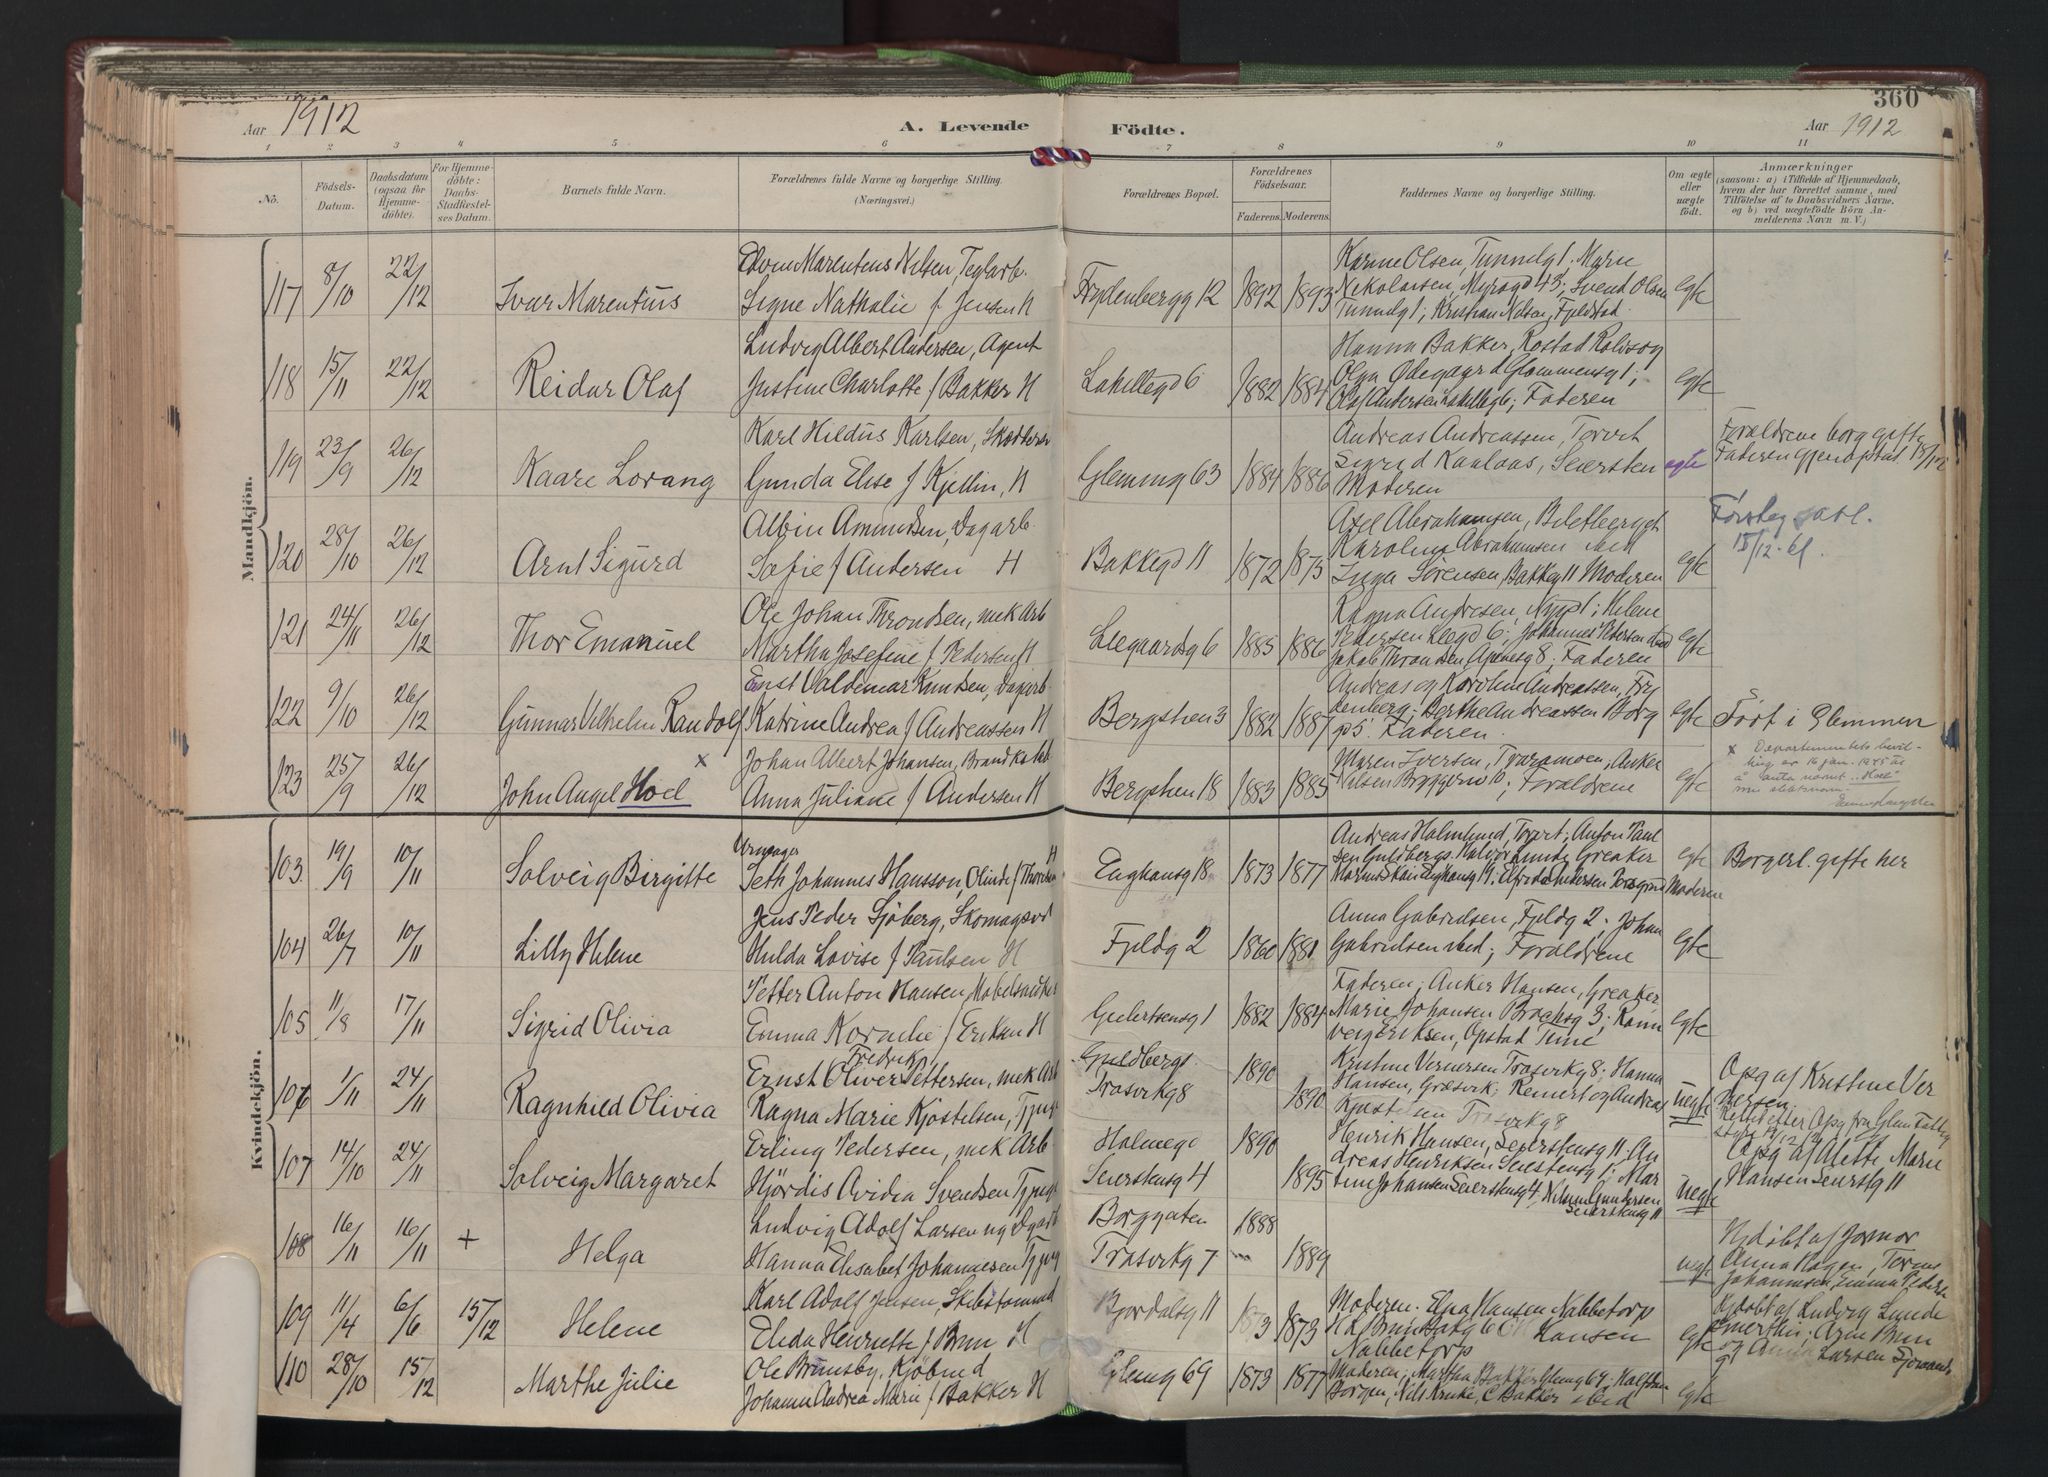 360
Aar 1912
A. Levende Födte.
Aar 1912
1 2 3 4 5 6 7 8 9 10 11
No. Födsels-Datum. Daabsdatum (ogsaa for Hjemmedöbte). For Hjemmedöbte: Daabs-Stadfestelses Datum. Barnets fulde Navn. Forældrenes fulde Navne og borgerlige Stilling. (Næringsvei.) Forældrenes Bopæl. Forældrenes Födselsaar. Faderens. Moderens. Faddernes Navne og borgerlige Stilling. Om ægte eller uægte födt. Anmærkninger (saasom: a) i Tilfælde af Hjemmedaab, hvem der har forrettet samme, med Tilföielse af to Daabsvidners Navne, og b) ved uægtefödte Börn Anmelderens Navn m. V.)
Mandkjön.
117 8/10 22/12 Ivar Marentius
Edvin Marentius Nilsen, Teglarb.
Signe Nathalie f. Jensen H
Frydenbergg 12 1892 1893
Karine Olsen, Tunnelg 1; Marie
Nikolaisen, Myragd 43; Svend Olsen
Tunnelg 1; Kristian Nilsen, Fjeldstad
Egte
118 15/11 22/12 Reidar Olaf
Ludvig Albert Andersen, Agent
Justine Charlotte f Bakker H
Lakillegd 6 1882 1884
Hanna Bakker, Rostad Rolvsøy
Olga Ødegaard Glommensg 1;
Olaf Andersen Lakilleg 6; Faderen
Egte
119 23/9 26/12 Kaare Lorang
Karl Hildus Karlsen,
Gunda Elise f Kjellin, H
Glemmg 63 1884 1886
Andreas Andreassen, Torvet
Sigrid Kaalaas, Seiersten
Moderen
egte
Forældrene borg gifte
Faderen
120 28/10 26/12 Arnt Sigurd
Albin Amundsen, Dagarb.
Sofie f Andersen H
Bakkegd 11 1872 1875
Axel Abrahamsen,
Karoline Abrahamsen ibid
Inga Sörensen, Bakkeg 11 Moderen
Egte
15/12-61.
121 24/11 26/12 Thor Emanuel
Ole Johan Throndsen, mek Arb
Martha Josefine f Pedersen H
Leegaardsg 6 1885 1886
Ragna Andresen, Nygg 1; Helene
Pedersen Leegd 6; Johannes Petersen ibid
Jakob Throndsen, Apenesg 8; Faderen
Egte
122 9/10 26/12 Gunnar Vilhelm Randolf
Ernst Valdemar Knudsen, Dagarb.
Katrine Andrea f Andreassen H
Bergstien 3 1882 1887
Andreas og Karoline Andreassen, Fry
denberg; Berthe Andreassen Borg
g 5. Faderen.
Egte
Födt i Glemmen
123 25/9 26/12 John Angel Hoel x
Johan Albert Johansen,
Anna Juliane f Andersen H
Bergstien 18 1883 1885
Maren Iversen, Tvaramoen, Anker
Nilsen Bryggeriv 10; Forældrene
Egte
x Departementets bevil-
ling av 16 jan. 1945 til
å anta navnet "Hoel"
som slektsnavn.
Kvindekjön.
103 19/9 10/11 Solveig Birgitte
Urmager
Seth Johannes Hansson, Olinde f Thor H
Enghausg 18 1873 1877
Andreas Holmlund, Torvet; Anton Paul
sen Guldbergs. Halvor Lunde Greaker
Moderen
Egte
Borgerl. gifte her
104 26/7 10/11 Lilly Helene
Jens Peder Sjöberg, Skomagersv
Hulda Lovise f Paulsen H
Fjeldg 2 1860 1881
Anna Gabrielsen, Fjeldg 2; Johan
Gabrielsen ibid; Forældrene
Egte
105 11/8 17/11 Sigrid Olivia
Petter Anton Hansen, Möbelsnedker
Emma Kornelie f Eriksen H
Gulbertsensg 1 1882 1884
Faderen; Anker Hansen, Greaker,
Marie Johansen Brochsg 3; Rann
veig Eriksen, Opstad Tune
Egte
106 1/11 24/11 Ragnhild Olivia
Fredrik
Ernst Oliver Pettersen, mek Arb
Ragna Marie Kjöstelsen, Tjp
Guldbergs.
Trosvikg 8
1890 1890
Kristine Vernersen Trosvikg 8; Hanna
Hansen, Græsvik; Reinert og Andreas
Kjöstelsen Trosvikg 8
Uegte
Opg af Kristine Ver
nersen
107 14/10 24/11 Solveig Margaret
Erling Pedersen, mek Arb
Hjördis Ovidia Svendsen Tjpig
Holmegd
Seierstensg 4
1890 1895
Henrik Hansen, Seierstensg 11. An
dreas Henriksen Seierstensg 1; Mar
tin Johansen Seierstensg 4, Gundersen
Seierstensg 11
Uegte
Opg af Alette Marie
Hansen Seierstg 11
108 16/11 16/11 + Helga
Ludvig Adolf Larsen ug Dgarb
Hanna Elisabet Johannesen Tjpig
Borggaten
Trosvikg 7
1888 1889
uegt.
Hjdöbt af Jormor
Anna Hagen,
Johannesen, Emma Peders
109 11/4 6/6 15/12 Helene
Karl Adolf Jensen, Skibstömmd
Elida Henriette f Brun H
Bjordalsg 11 1873 1873
Moderen. Elna Hansen Nabbetorp
Hansen
Nabbetorp
Egte
Hjdöbt af Ludvig Lunde
Brun
og Anna Larsen
110 28/10 15/12 Marthe Julie
Ole Brumsby, Kjöbmd
Johanne Andrea Marie f Bakker H
Glemmg 69 1873 1877
Moderen, Martha Bakker Glemg 69. Halfdan
Borgen, Nils Kruke, C Bakker ibid
Egte